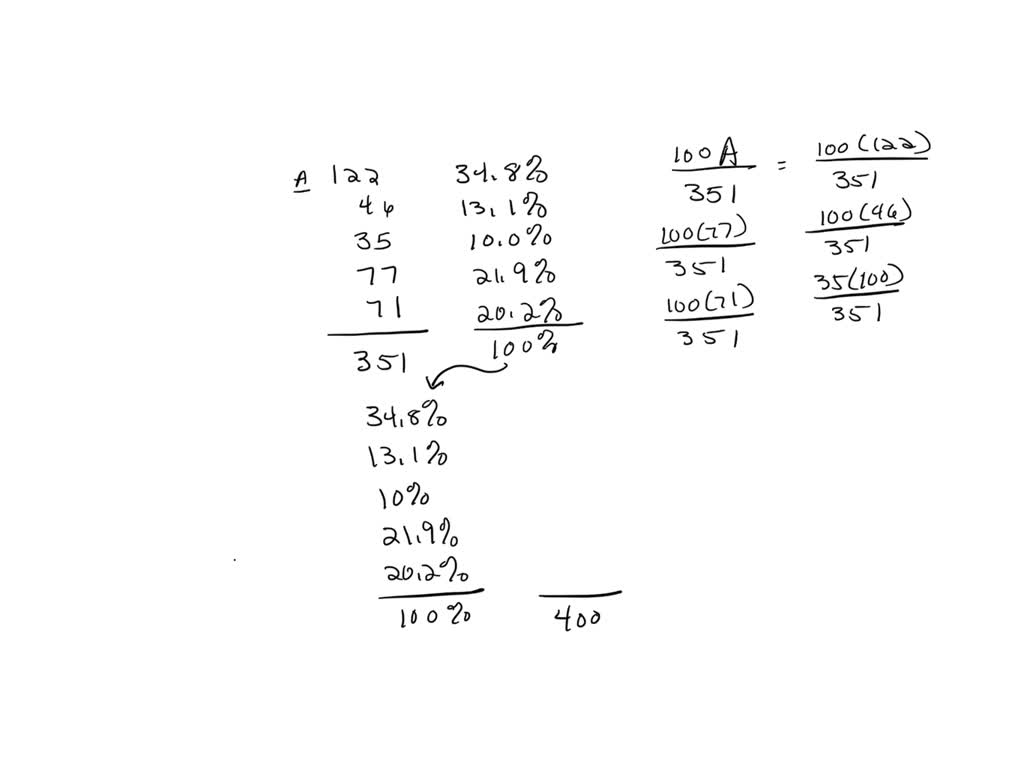 A 122 34.8% 100A/351 = 100(122)/351
46 13.1%
35 10.0% 100(77)/351 100(46)/351
77 21.9%
71 20.2% 100(71)/351 35(100)/351
351 100%
34.8%
13.1%
10%
21.9%
20.2%
100% 400